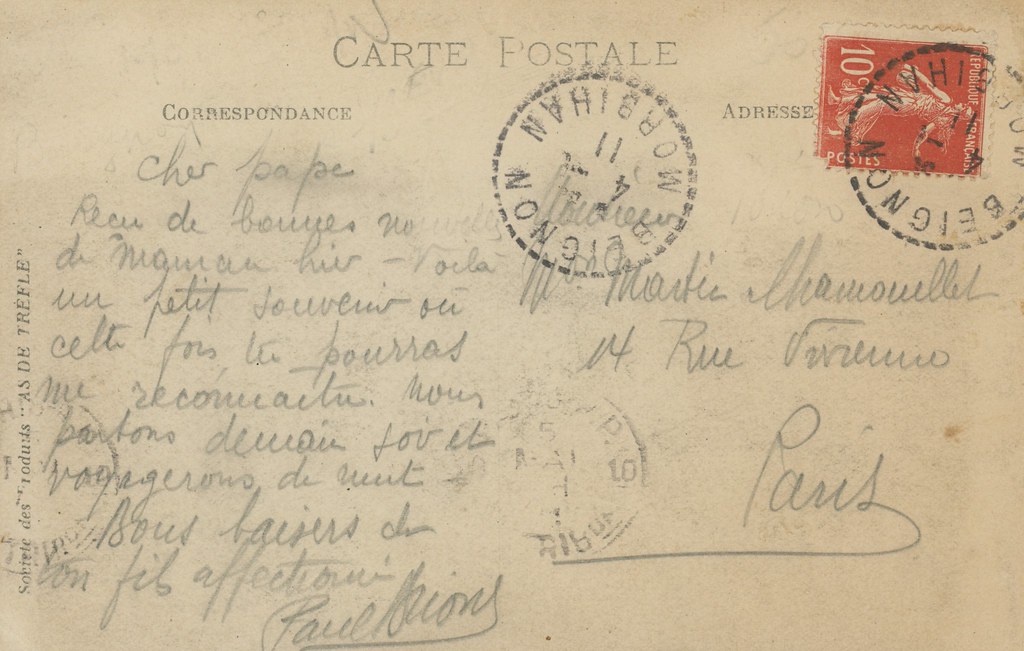 CARTE POSTALE
CORRESPONDANCE
ADRESSE
10c
REPUBLIQUE FRANÇAISE
POSTES
BEIGNON
MORBIHAN
11
4
BEIGNON
MORBIHAN
cher papa
Recu de bonnes nouvelles
de Maman hier - Voilà
un petit souvenir où
cette fois tu pourras
me reconnaitre. Nous
partons demain soir et
voyagerons de nuit -
Bons baisers de
ton fils affectionné
Paul
Monsieur
Martin
14 Rue Vivienne
Paris
Société des Produits "AS DE TRÈFLE"